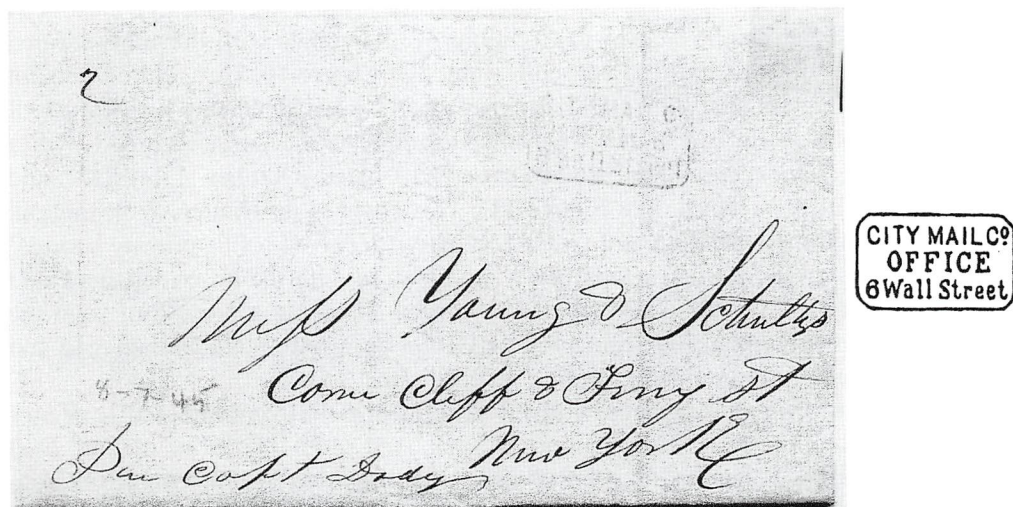 2
Mess Young & Schultz
Corner Cliff & Ferry St
8-7-45
New York
Per Capt Dody
CITY MAIL Cº
OFFICE
6 Wall Street